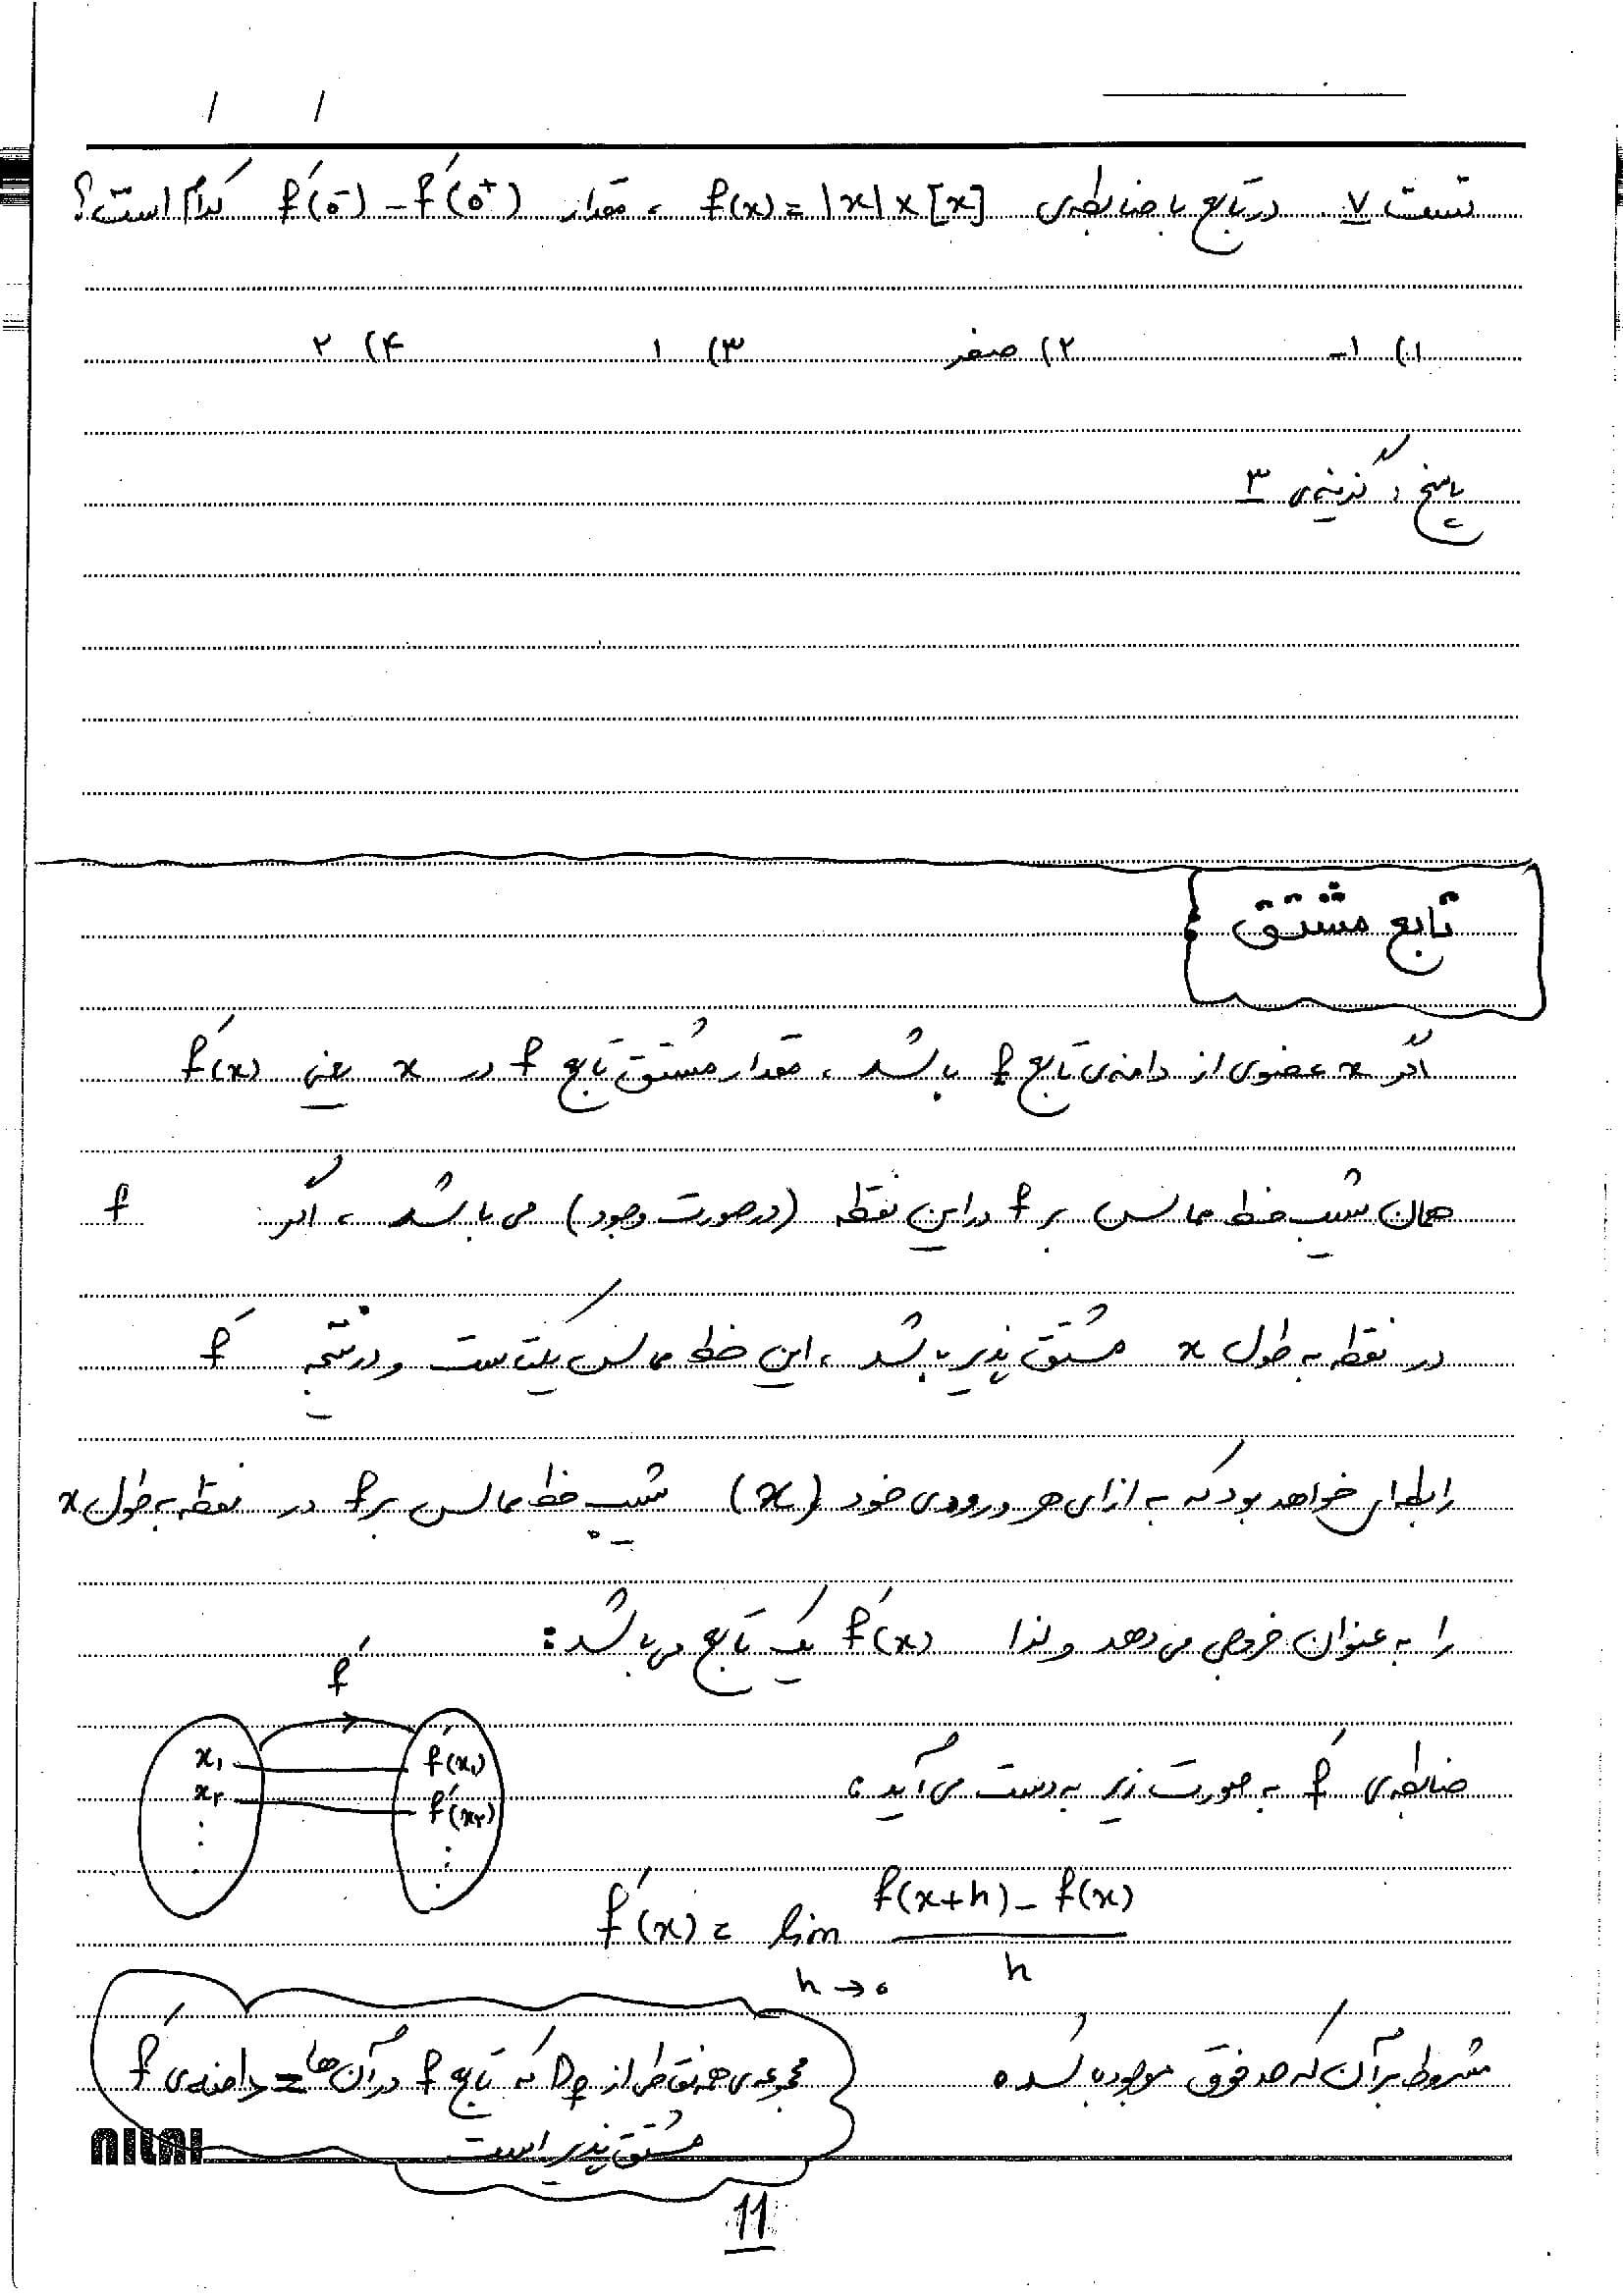 تست ۷. در تابع با ضابطه‌ی f(x) = |x| × [x] ، مقدار f′(0⁻) − f′(0⁺) کدام است؟
۱) ۱−    ۲) صفر    ۳) ۱    ۴) ۲
پاسخ: گزینه‌ی ۳
تابع مشتق:
اگر x عضوی از دامنه‌ی تابع f باشد، مقدار مشتق تابع f در x یعنی f′(x)
همان شیب خط مماس بر f در این نقطه (در صورت وجود) می باشد، اگر f
در نقطه به طول x مشتق پذیر باشد، این خط مماس یکتاست و در نتیجه f′
رابطه ای خواهد بود که به ازای هر ورودی خود (x) شیب خط مماس بر f در نقطه به طول x
را به عنوان خروجی می دهد و لذا f′(x) یک تابع می باشد:
f′
x₁ f′(x₁)
x₂ f′(x₂)
⋮ ⋮
ضابطه‌ی f′ به صورت زیر به دست می آید:
f′(x) = lim h→0 (f(x+h) − f(x)) / h
مشروط بر آن که حد فوق موجود باشد.
دامنه‌ی f′ = مجموعه‌ی همه نقاطی از D_f که تابع f در آن ها
مشتق پذیر است
NILNI
11